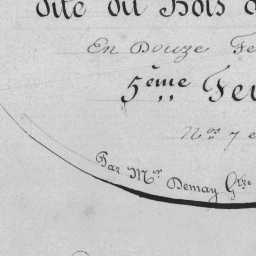 dite du Bois d
En Douze Fe
5ème Feu
Nos 7 e
Par Mr Demay Gtre